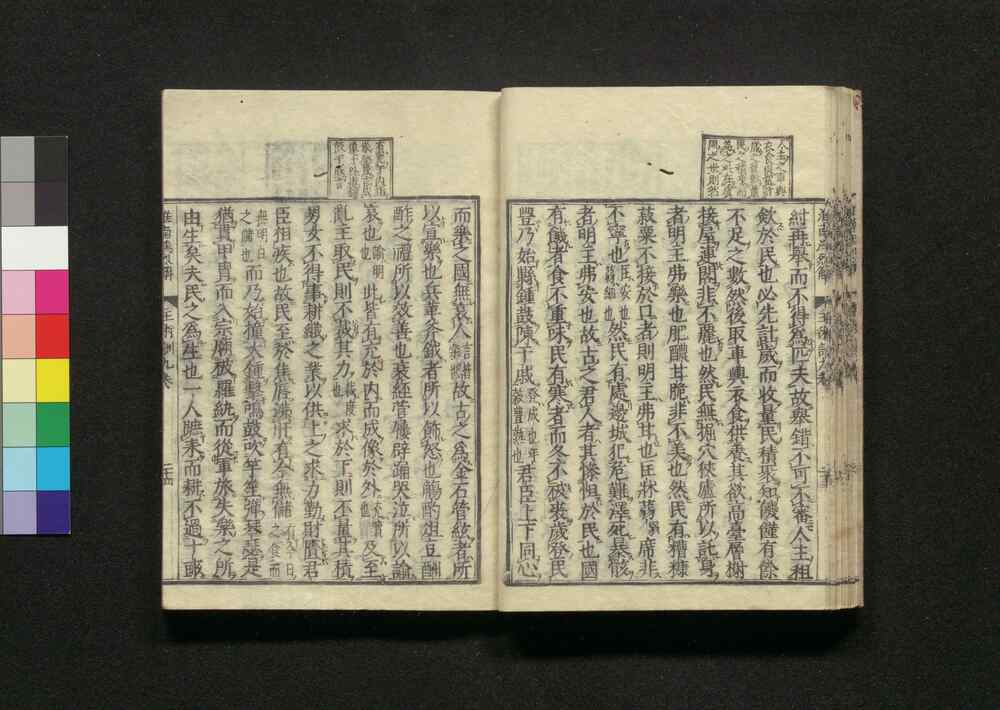 紂再舉而不得爲匹夫故舉錯不可不審人主租
斂於民也必先計歲而收量民積聚知饑饉有餘
不足之數然後取車輿衣食供養其欲高臺層榭
接屋連閣非不麗也然民無掘穴狹廬所以託身
者明主弗樂也肥醲甘脆非不美也然民有糟糠
菽粟不接於口者則明主弗甘也匡牀蒻席非
不寧也匡安也蒻細也然民有處邊城犯危難澤死暴骸
者明主弗安也故古之君人者其慘怛於民也國
有饑者食不重味民有寒者而冬不被裘歲登民
豐乃始縣鍾鼓陳干戚登成也年穀豐熟也君臣上下同心
而樂之國無哀人故古之爲金石管絃者所
以宣樂也兵革斧鉞者所以飾怒也觴酌俎豆酬
酢之禮所以效善也衰絰菅屨辟踊哭泣所以諭
哀也諭明此皆有充於內而成像於外及至
亂主取民則不裁其力裁度也求於下則不量其積
男女不得事耕織之業以供上之求力勤財匱君
臣相疾也故民至於焦脣沸肝有今無儲有今日之食而
無明日之儲也而乃始撞大鍾擊鳴鼓吹竽笙彈琴瑟是
猶貫甲冑而入宗廟被羅紈而從軍旅失樂之所
由生矣夫民之爲生也一人蹠耒而耕不過十畝